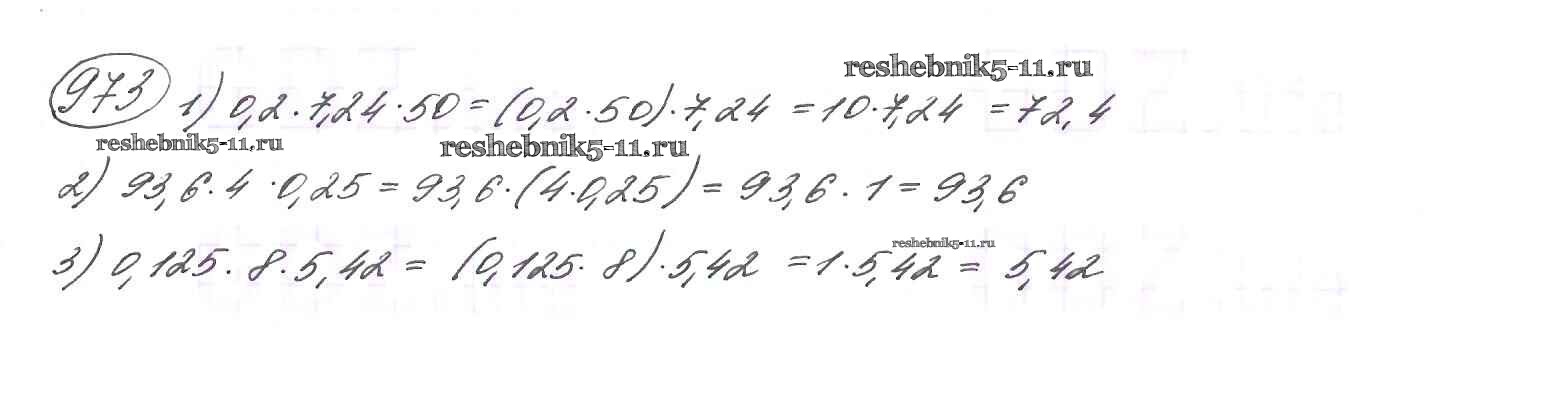 reshebnik5-11.ru
973 1) 0,2·7,24·50=(0,2·50)·7,24 =10·7,24 =72,4
reshebnik5-11.ru reshebnik5-11.ru
2) 93,6·4·0,25=93,6·(4·0,25)=93,6·1=93,6
reshebnik5-11.ru
3) 0,125·8·5,42= (0,125·8)·5,42 =1·5,42= 5,42